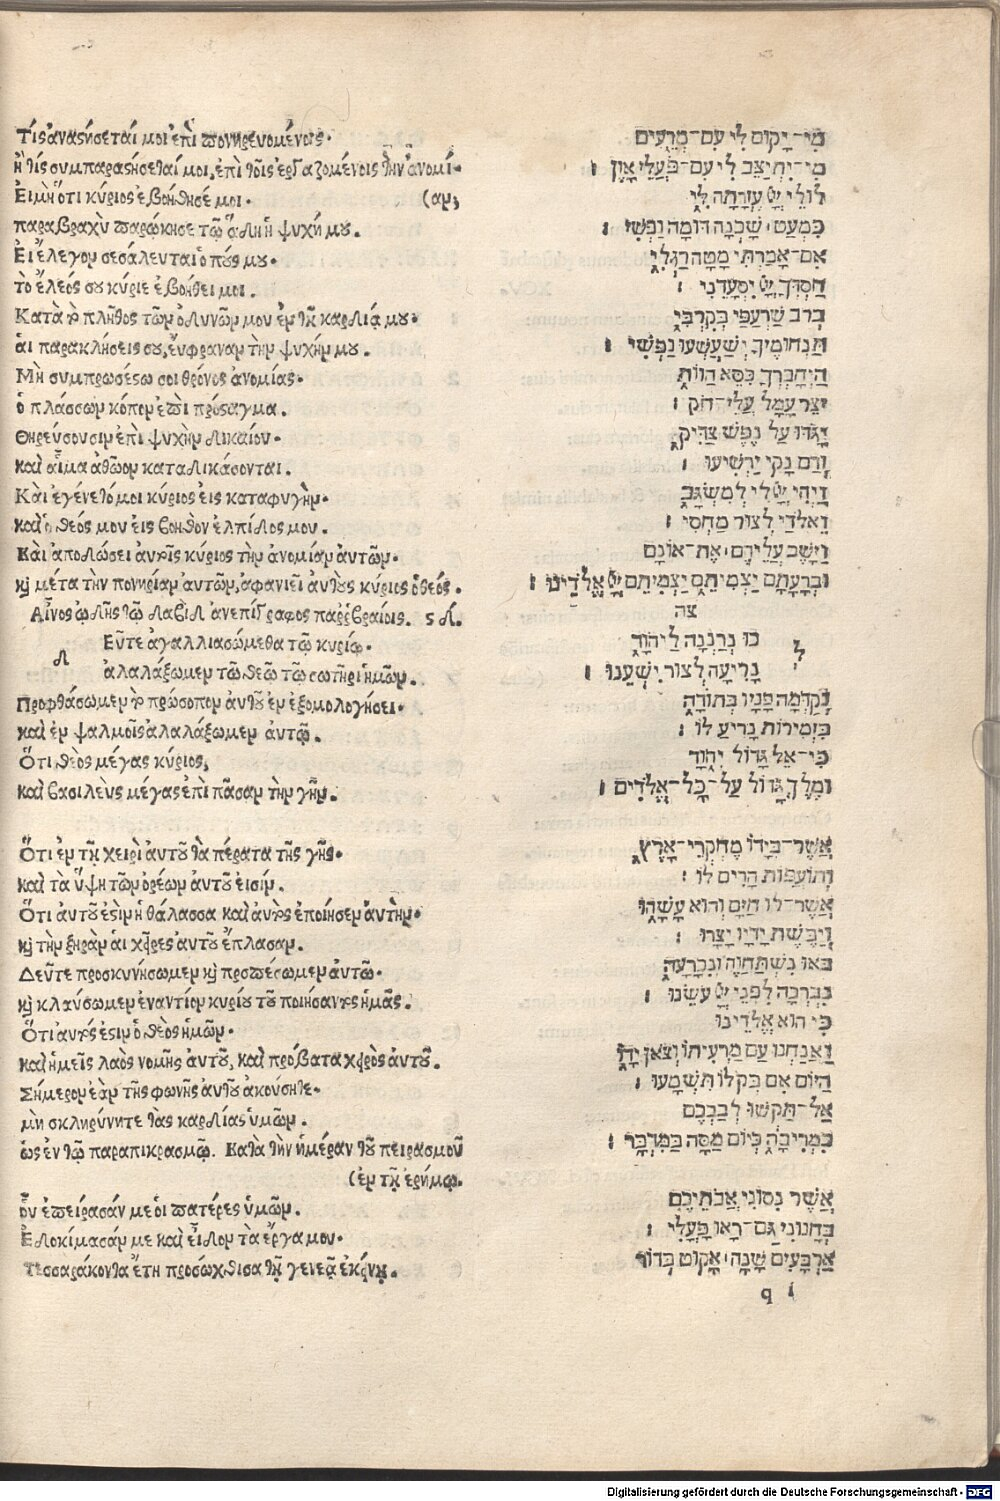 Τίς ἀναστήσεταί μοι ἐπὶ πονηρευομένοις·
ἢ τίς συμπαραστήσεταί μοι, ἐπὶ τοῖς ἐργαζομένοις τὴν ἀνομί-
Εἰ μὴ ὅτι κύριος ἐβοήθησέ μοι· (αν;
παραβραχὺ παρῴκησε τῷ ᾅδῃ ἡ ψυχή μου.
Εἰ ἔλεγον σεσάλευται ὁ πούς μου·
τὸ ἔλεός σου κύριε ἐβοήθει μοι.
Κατὰ τὸ πλῆθος τῶν ὀδυνῶν μου ἐν τῇ καρδίᾳ μου·
ἁι παρακλήσεις σου, ἐύφραναν τὴν ψυχήν μου.
Μὴ συμπρωσέστω σοι θρόνος ἀνομίας·
ὁ πλάσσων κόπον ἐπὶ πρόσταγμα.
Θηρεύσουσιν ἐπὶ ψυχὴν δικαίου·
καὶ αἷμα ἀθῶον καταδικάσονται.
Κὰι ἐγένετό μοι κύριος ἐις καταφυγήν·
καὶ ὁ θεός μου ἐις βοηθὸν ἐλπίδος μου.
Κὰι ἀποδώσει ἀυτοῖς κύριος τὴν ἀνομίαν ἀυτῶν·
καὶ μέτα τὴν πονηρίαν ἀυτῶν, ἀφανιεῖ ἀυτοὺς κύριος ὁ θεός.
Αἶνος ᾠδῆς τῷ δαβὶδ ἀνεπίγραφος παρ' ἑβραίοις. ϛδ.
Εῦτε ἀγαλλιασώμεθα τῷ κυρίῳ·
Δ
ἀλαλάξωμεν τῷ θεῷ τῷ σωτῆρι ἡμῶν.
Προφθάσωμεν τὸ πρόσωπον ἀυτοῦ ἐν ἐξομολογήσει·
καὶ ἐν ψαλμοῖς ἀλαλάξωμεν ἀυτῷ.
Ὅτι θεὸς μέγας κύριος,
καὶ βασιλεὺς μέγας ἐπὶ πᾶσαν τὴν γῆν.
Ὅτι ἐν τῇ χειρὶ ἀυτοῦ τὰ πέρατα τῆς γῆς·
καὶ τὰ ὕψη τῶν ὀρέων ἀυτοῦ ἐισίν.
Ὅτι ἀυτοῦ ἐστιν ἡ θάλασσα καὶ ἀυτὸς ἐποίησεν ἀυτήν·
καὶ τὴν ξηρὰν ἁι χεῖρες ἀυτοῦ ἔπλασαν.
Δεῦτε προσκυνήσωμεν καὶ προσπέσωμεν ἀυτῷ·
καὶ κλαύσωμεν ἐναντίον κυρίου τοῦ ποιήσαντος ἡμᾶς.
Ὅτι ἀυτός ἐστιν ὁ θεὸς ἡμῶν·
καὶ ἡμεῖς λαὸς νομῆς ἀυτοῦ, καὶ πρόβατα χειρὸς ἀυτοῦ.
Σήμερον ἐὰν τῆς φωνῆς ἀυτοῦ ἀκούσητε·
μὴ σκληρύνητε τὰς καρδίας ὑμῶν.
ὡς ἐν τῷ παραπικρασμῷ. Κατὰ τὴν ἡμέραν τοῦ πειρασμοῦ
(ἐν τῇ ἐρήμῳ.
οὗ ἐπείρασάν με ὁι πατέρες ὑμῶν.
Ἐδοκίμασάν με καὶ εἶδον τὰ ἔργα μου·
Τεσσαράκοντα ἔτη προσώχθισα τῇ γενεᾷ ἐκείνῃ.
מִי־יָקוּם לִי עִם־מְרֵעִים
מִי־יִתְיַצֵּב לִי עִם־פֹּעֲלֵי אָוֶן׃
לוּלֵי יְיָ עֶזְרָתָה לִּי
כִּמְעַט שָׁכְנָה דוּמָה נַפְשִׁי׃
אִם־אָמַרְתִּי מָטָה רַגְלִי
חַסְדְּךָ יְיָ יִסְעָדֵנִי׃
בְּרֹב שַׂרְעַפַּי בְּקִרְבִּי
תַּנְחוּמֶיךָ יְשַׁעַשְׁעוּ נַפְשִׁי׃
הַיְחָבְרְךָ כִּסֵּא הַוּוֹת
יֹצֵר עָמָל עֲלֵי־חֹק׃
יָגֹדּוּ עַל נֶפֶשׁ צַדִּיק
וְדָם נָקִי יַרְשִׁיעוּ׃
וַיְהִי יְיָ לִי לְמִשְׂגָּב
וֵאלֹדַי לְצוּר מַחְסִי׃
וַיָּשֶׁב עֲלֵיהֶם אֶת־אוֹנָם
וּבְרָעָתָם יַצְמִיתֵם יַצְמִיתֵם יְיָ אֱלֹדֵינוּ׃
צה
כוּ נְרַנְּנָה לַיהוָֹד
ל
נָרִיעָה לְצוּר יִשְׁעֵנוּ׃
נְקַדְּמָה פָנָיו בְּתוֹדָה
בִּזְמִירוֹת נָרִיעַ לוֹ׃
כִּי־אֵל גָּדוֹל יְהוָֹד
וּמֶלֶךְ גָּדוֹל עַל־כָּל־אֱלֹדִים׃
אֲשֶׁר־בְּיָדוֹ מֶחְקְרֵי־אָרֶץ
וְתוֹעֲפוֹת הָרִים לוֹ׃
אֲשֶׁר־לוֹ הַיָּם וְהוּא עָשָׂהוּ
וְיַבֶּשֶׁת יָדָיו יָצָרוּ׃
בֹּאוּ נִשְׁתַּחֲוֶה וְנִכְרָעָה
נִבְרְכָה לִפְנֵי יְיָ עֹשֵׂנוּ׃
כִּי הוּא אֱלֹדֵינוּ
וַאֲנַחְנוּ עַם מַרְעִיתוֹ וְצֹאן יָדוֹ
הַיּוֹם אִם בְּקֹלוֹ תִשְׁמָעוּ׃
אַל־תַּקְשׁוּ לְבַבְכֶם
כִּמְרִיבָה כְּיוֹם מַסָּה בַּמִּדְבָּר׃
אֲשֶׁר נִסּוּנִי אֲבֹתֵיכֶם
בְּחָנוּנִי גַּם־רָאוּ פָעֳלִי׃
אַרְבָּעִים שָׁנָה אָקוּט בְּדוֹר
q i
Digitalisierung gefördert durch die Deutsche Forschungsgemeinschaft - DFG